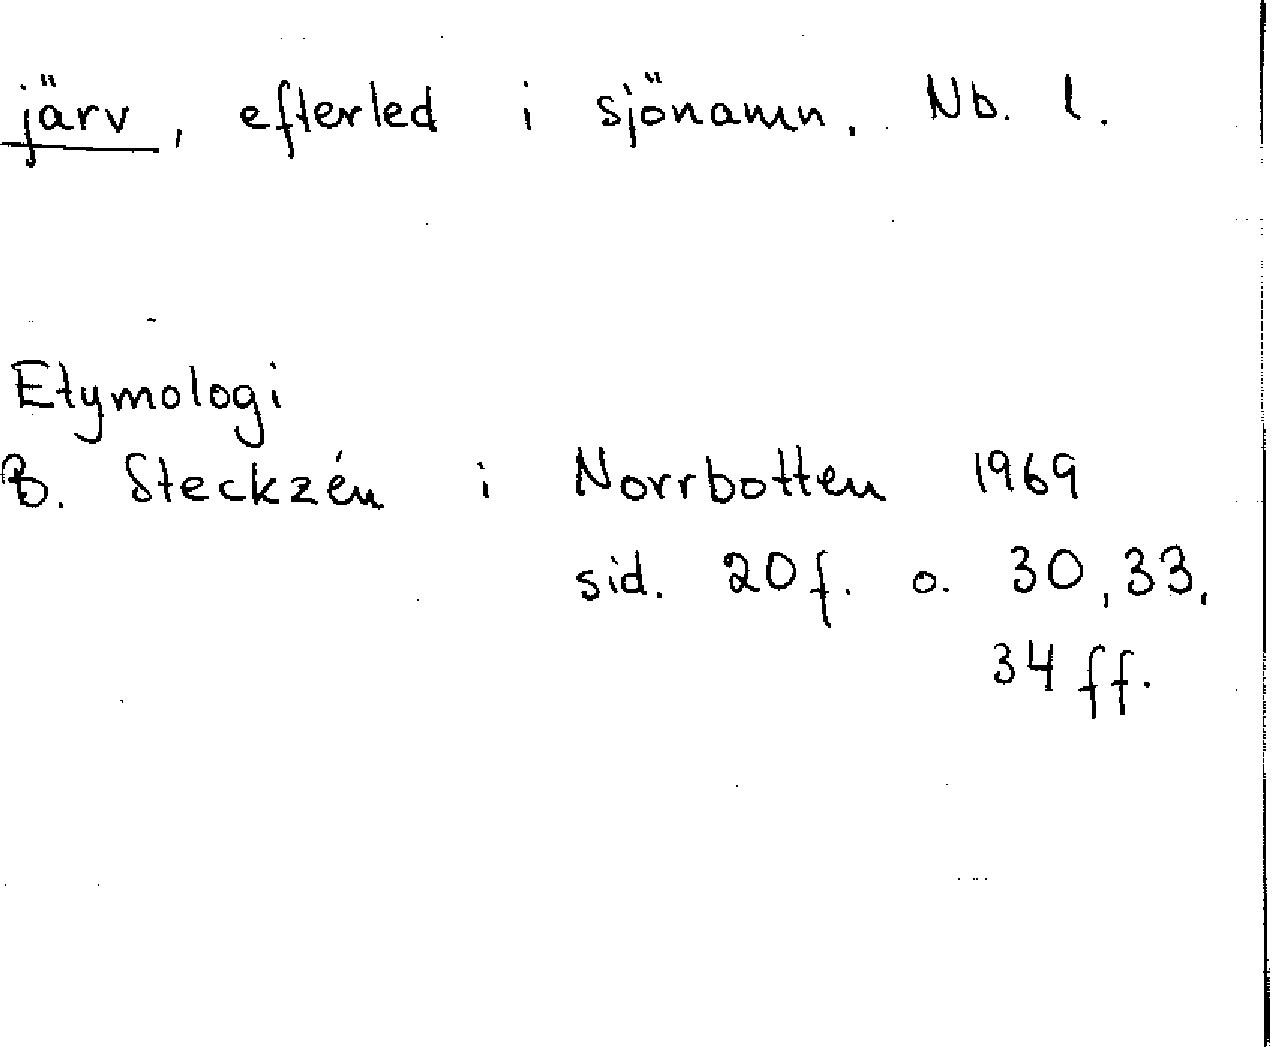 järv, efterled i sjönamn. Nb. l.
Etymologi
B. Steckzén i Norrbotten 1969
sid. 20 f. o. 30, 33,
34 ff.